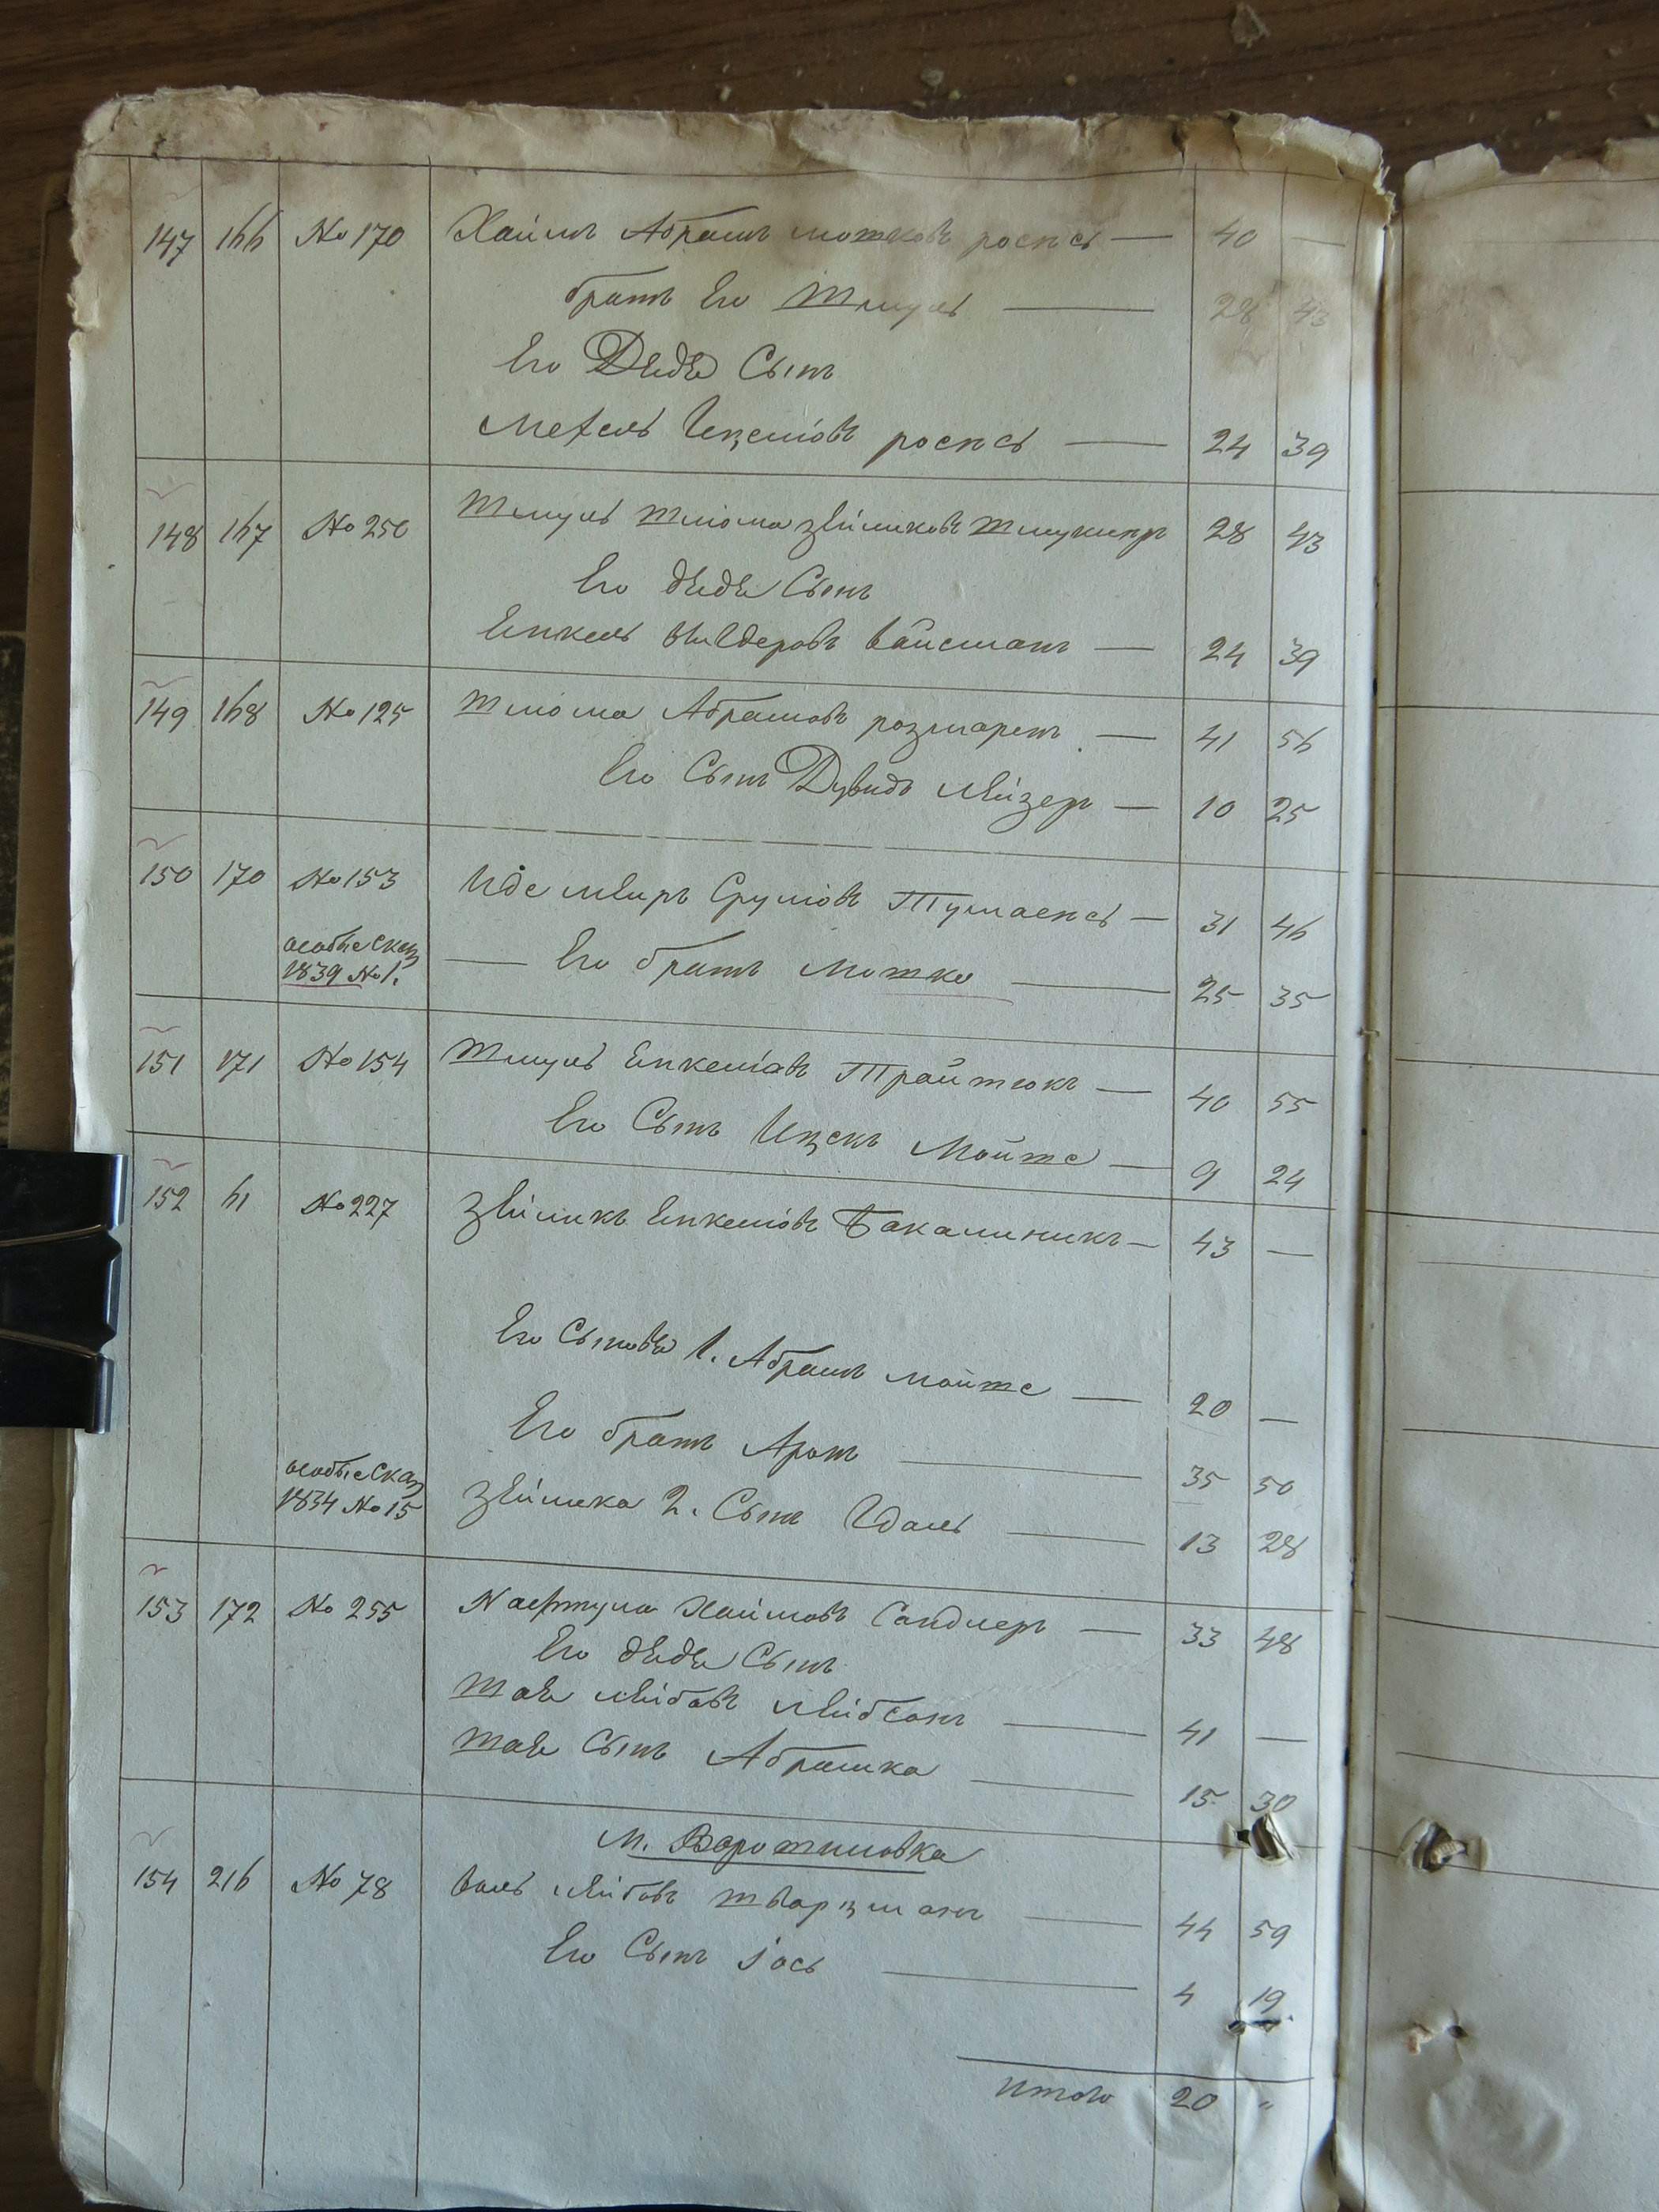 147 166 № 170 Хаимъ Абрамъ мошковъ роснсь — 40 —
братъ Его Шмуль — 28 43
Его Дядя Сынъ
Мехель Ицковъ роснсь — 24 39
148 167 № 250 Шмуль Шліома Зейликовъ Шмукиръ 28 43
Его дядя Сынъ
Янкель Вайсманъ — 24 39
149 168 № 125 Шліома Абрамовъ розмаренъ — 41 56
Его Сынъ Дувидъ Лейзеръ — 10 25
150 170 № 153 Иде меиръ Срулiовъ — 31 46
особые сказ — Его братъ Мошко — 25 35
1839 № 1.
151 171 № 154 Шмуль Янкелiовъ — 40 55
Его Сынъ Ицекъ Мойше — 9 24
152 61 № 227 Зейликъ Янкелiовъ Бакалиникъ — 43 —
Его Сыновья 1. Абрамъ мойше — 20 —
Его братъ Аронъ — 35 50
особые сказ Зейлика 2. Сынъ Идаль — 13 28
1834 № 15
153 172 № 255 Нафтула Хаимовъ Сандлеръ — 33 48
Его дядя Сынъ
Шая Лейбовъ Лейбсонъ — 41 —
Шая Сынъ Абрамка — 15 30
м. Воротиловка
154 216 № 78 Воль Лейбовъ Шварцманъ — 44 59
Его Сынъ Іось — 4 19.
Итого 20 "